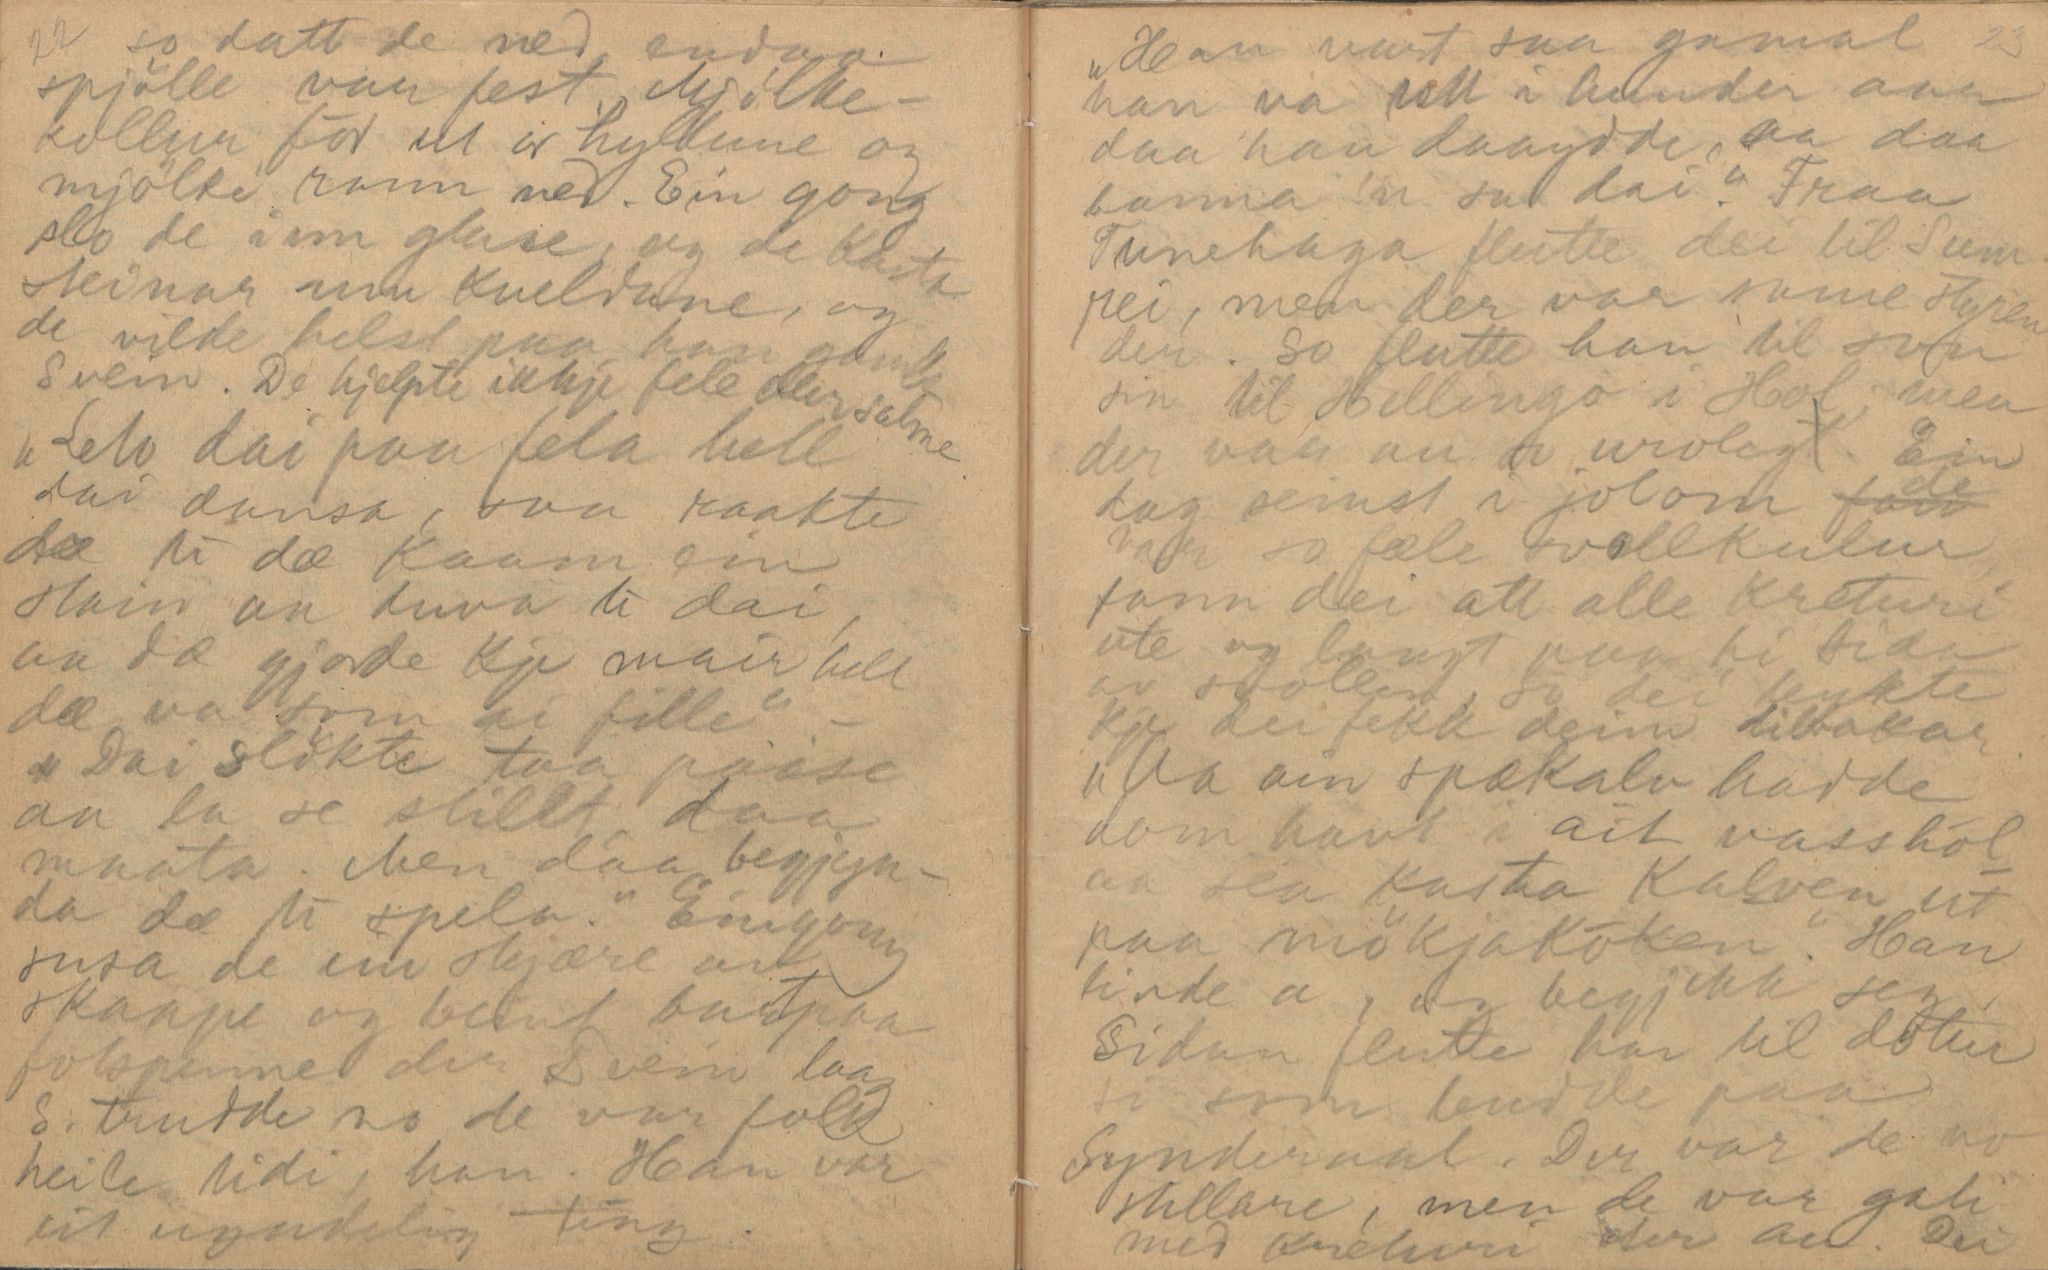 22
so datt de ned, endaa
spjölle var fest. Mjölke-
kollur för ut or hyllune og
mjölki rann ned. Ein gong
slo de inn glase, og de kasta
steinar um kveldane, og
de vilde helst paa han gamle
Svein. De hjelpte ikkje fele eller salme.
"Leto dai paa fela hell
dai dansa, saa raakte
dæ ti dæ kaam ein
stain aa tuva ti dai,
aa dæ gjorde kje mair hell
dæ va som ai fille" –
"Dai slökte taa paase
aa la se stillt daa
maata. Men daa begjyn-
da dæ ti spela." Eingong
susa de ein skjære or
skaape og beint burt paa
fotspenne der Svein laag
S. trudde no de var folk
heile tidi, han. Han var
eit uyndeleg ting.
23
"Han vart saa gamal
han va mett i hunder aar
daa han daaydde, aa daa
banna 'n saa dai." Fraa
Tunehaga flutte dei til Sum-
rei, men der var same styren
der. So flutte han til son
sin til Hellingo i Hol, men
der var au so uroleg. Ein
dag seinst i jolom de
var so fæle svollkulur,
fann dei att alle kreturi
ute og langt paa hi sida
av svollen, so dei tenkte
kje dei fekk deim tilbakar.
"Aa ain spækalv hadde
dom havt i ait vasshol
aa sea kasta kalven ut
paa mökjaköken." Han
livde a, og begjekk seg.
Sidan flutte han til dotur
si som budde paa
Synderaal. Der var de no
stillare, men de var gali
med kreturi der au. Dei